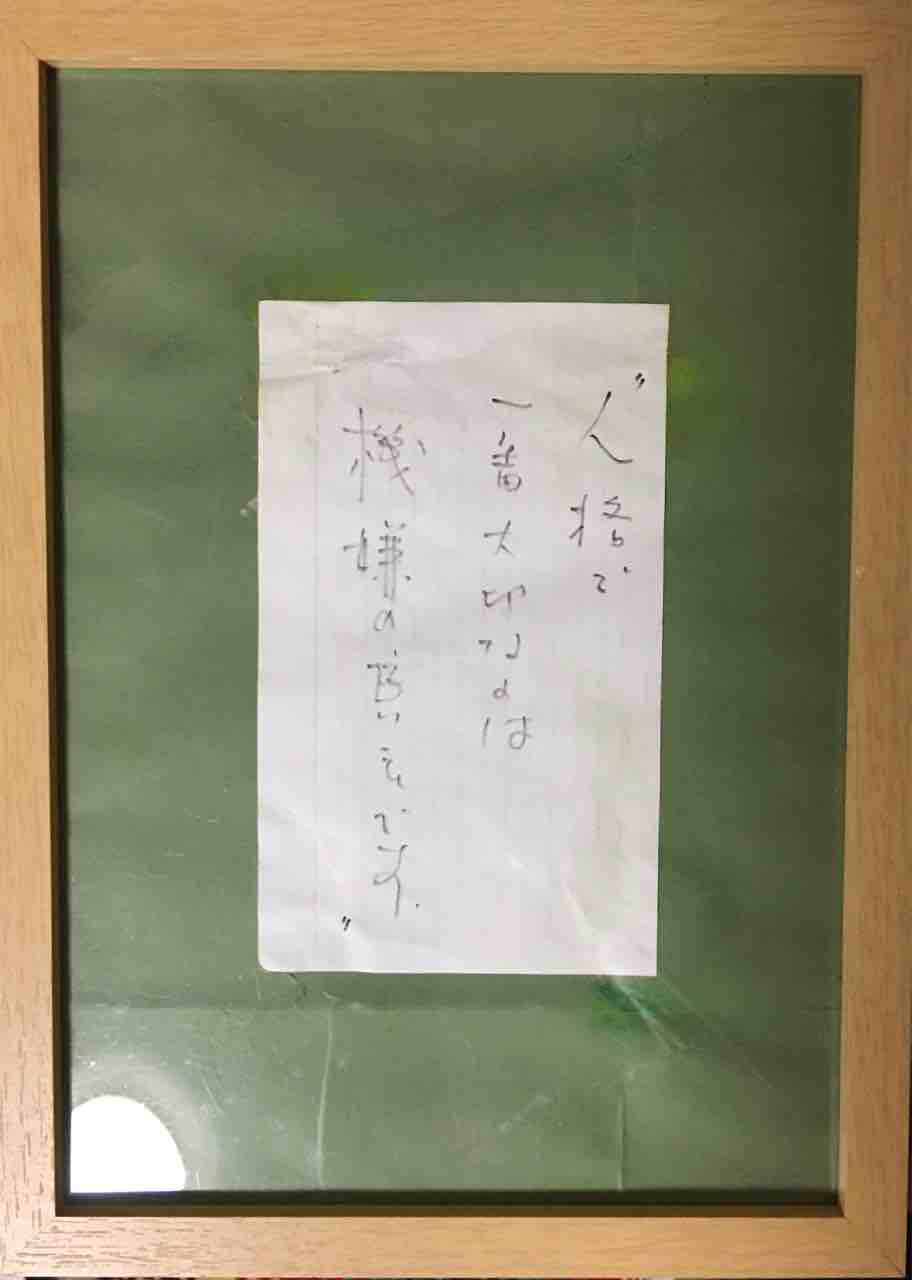 "人格で
一番大切なのは
機嫌の良さです."